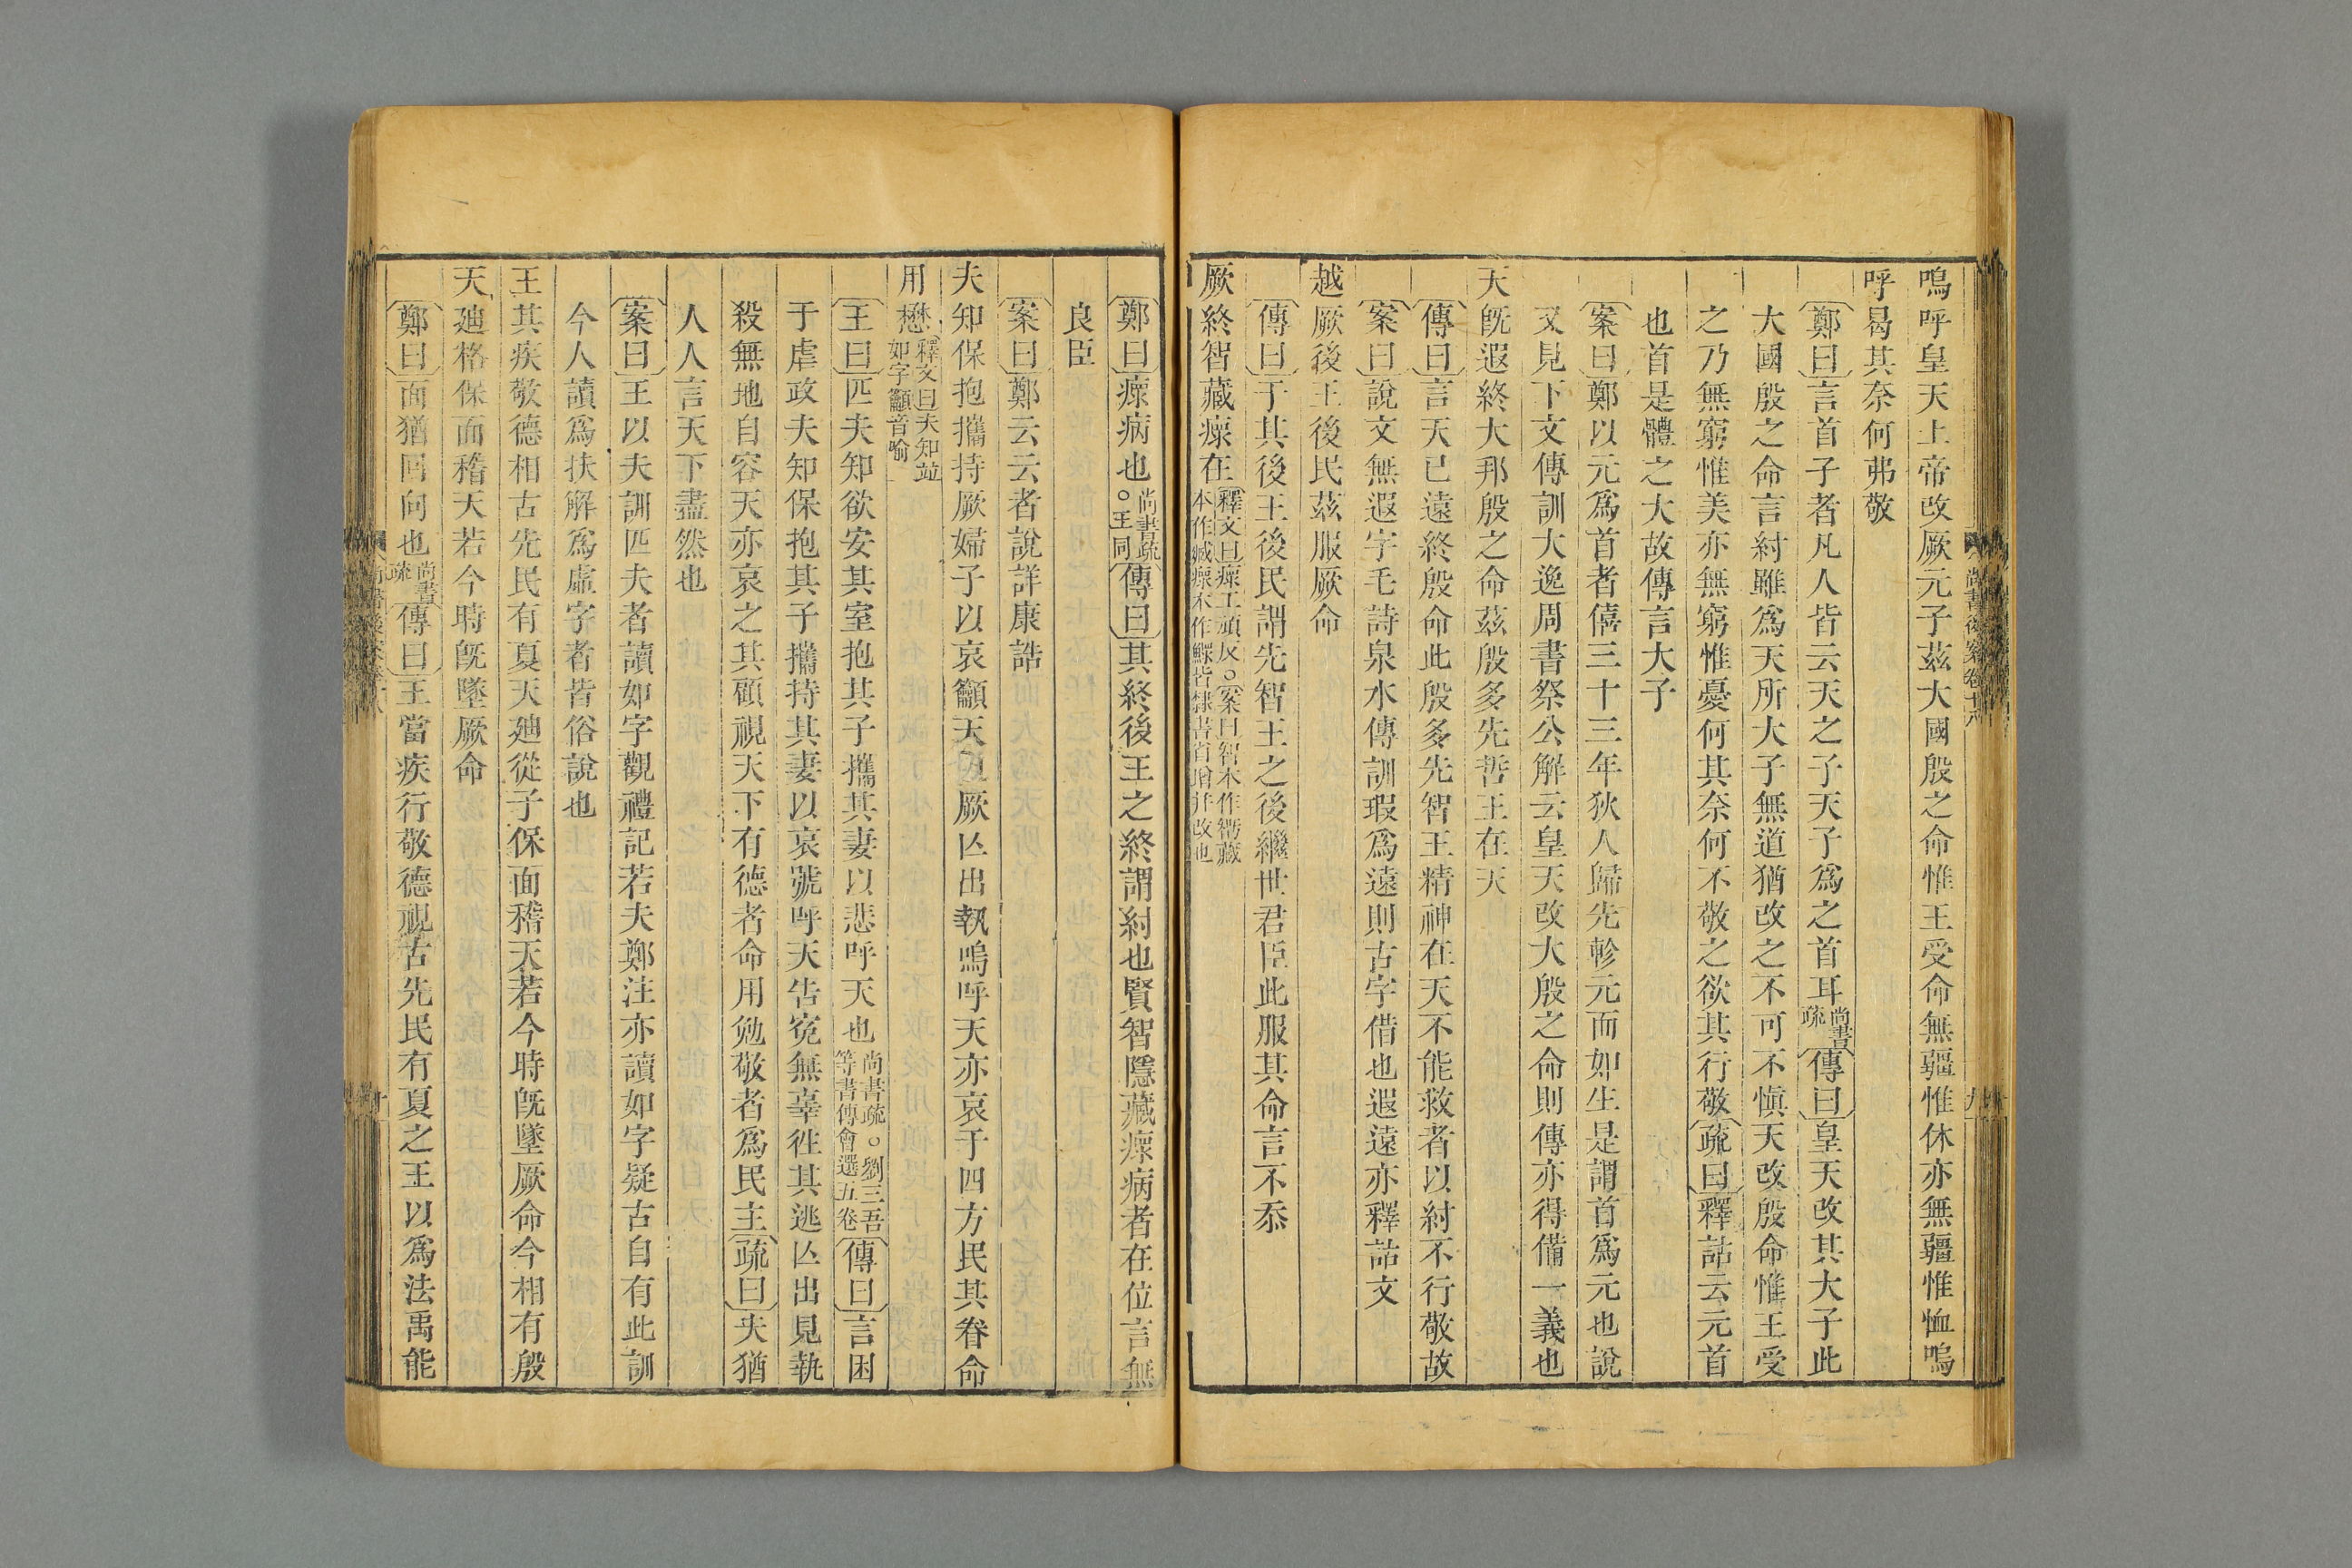 嗚呼皇天上帝改厥元子茲大國殷之命惟王受命無疆惟休亦無疆惟恤嗚
呼曷其奈何弗敬
鄭曰言首子者凡人皆云天之子天子爲之首耳尚書疏傳曰皇天改其大子此
大國殷之命言紂雖爲天所大子無道猶改之不可不愼天改殷命惟王受
之乃無窮惟美亦無窮惟憂何其奈何不敬之欲其行敬疏曰釋詁云元首
也首是體之大故傳言大子
案曰鄭以元爲首者僖三十三年狄人歸先軫元而如生是謂首爲元也說
又見下文傳訓大逸周書祭公解云皇天改大殷之命則傳亦得備一義也
天旣遐終大邦殷之命茲殷多先哲王在天
傳曰言天已遠終殷命此殷多先智王精神在天不能救者以紂不行敬故
案曰說文無遐字毛詩泉水傳訓瑕爲遠則古字借也遐遠亦釋詁文
越厥後王後民茲服厥命
傳曰于其後王後民謂先智王之後繼世君臣此服其命言不忝
厥終智藏瘝在釋文曰瘝工頑反○案曰智本作𥏼藏
本作臧瘝本作鰥皆隸書省增并改也
尚書後案卷十八
九
鄭曰瘝病也○尚書疏王同傳曰其終後王之終謂紂也賢智隱藏瘝病者在位言無
良臣
案曰鄭云云者說詳康誥
夫知保抱攜持厥婦子以哀籲天徂厥亾出執嗚呼天亦哀于四方民其眷命
用懋釋文曰夫知竝
如字籲音喻
王曰匹夫知欲安其室抱其子攜其妻以悲呼天也尚書疏○劉三吾
等書傳會選五卷傳曰言困
于虐政夫知保抱其子攜持其妻以哀號呼天告冤無辜徃其逃亾出見執
殺無地自容天亦哀之其顧視天下有德者命用勉敬者爲民主疏曰夫猶
人人言天下盡然也
案曰王以夫訓匹夫者讀如字觀禮記若夫鄭注亦讀如字疑古自有此訓
今人讀爲扶解爲虛字者皆俗說也
王其疾敬德相古先民有夏天廸從子保面稽天若今時旣墜厥命今相有殷
天廸格保面稽天若今時旣墜厥命
鄭曰面猶回向也尚書疏傳曰王當疾行敬德視古先民有夏之王以爲法禹能
十